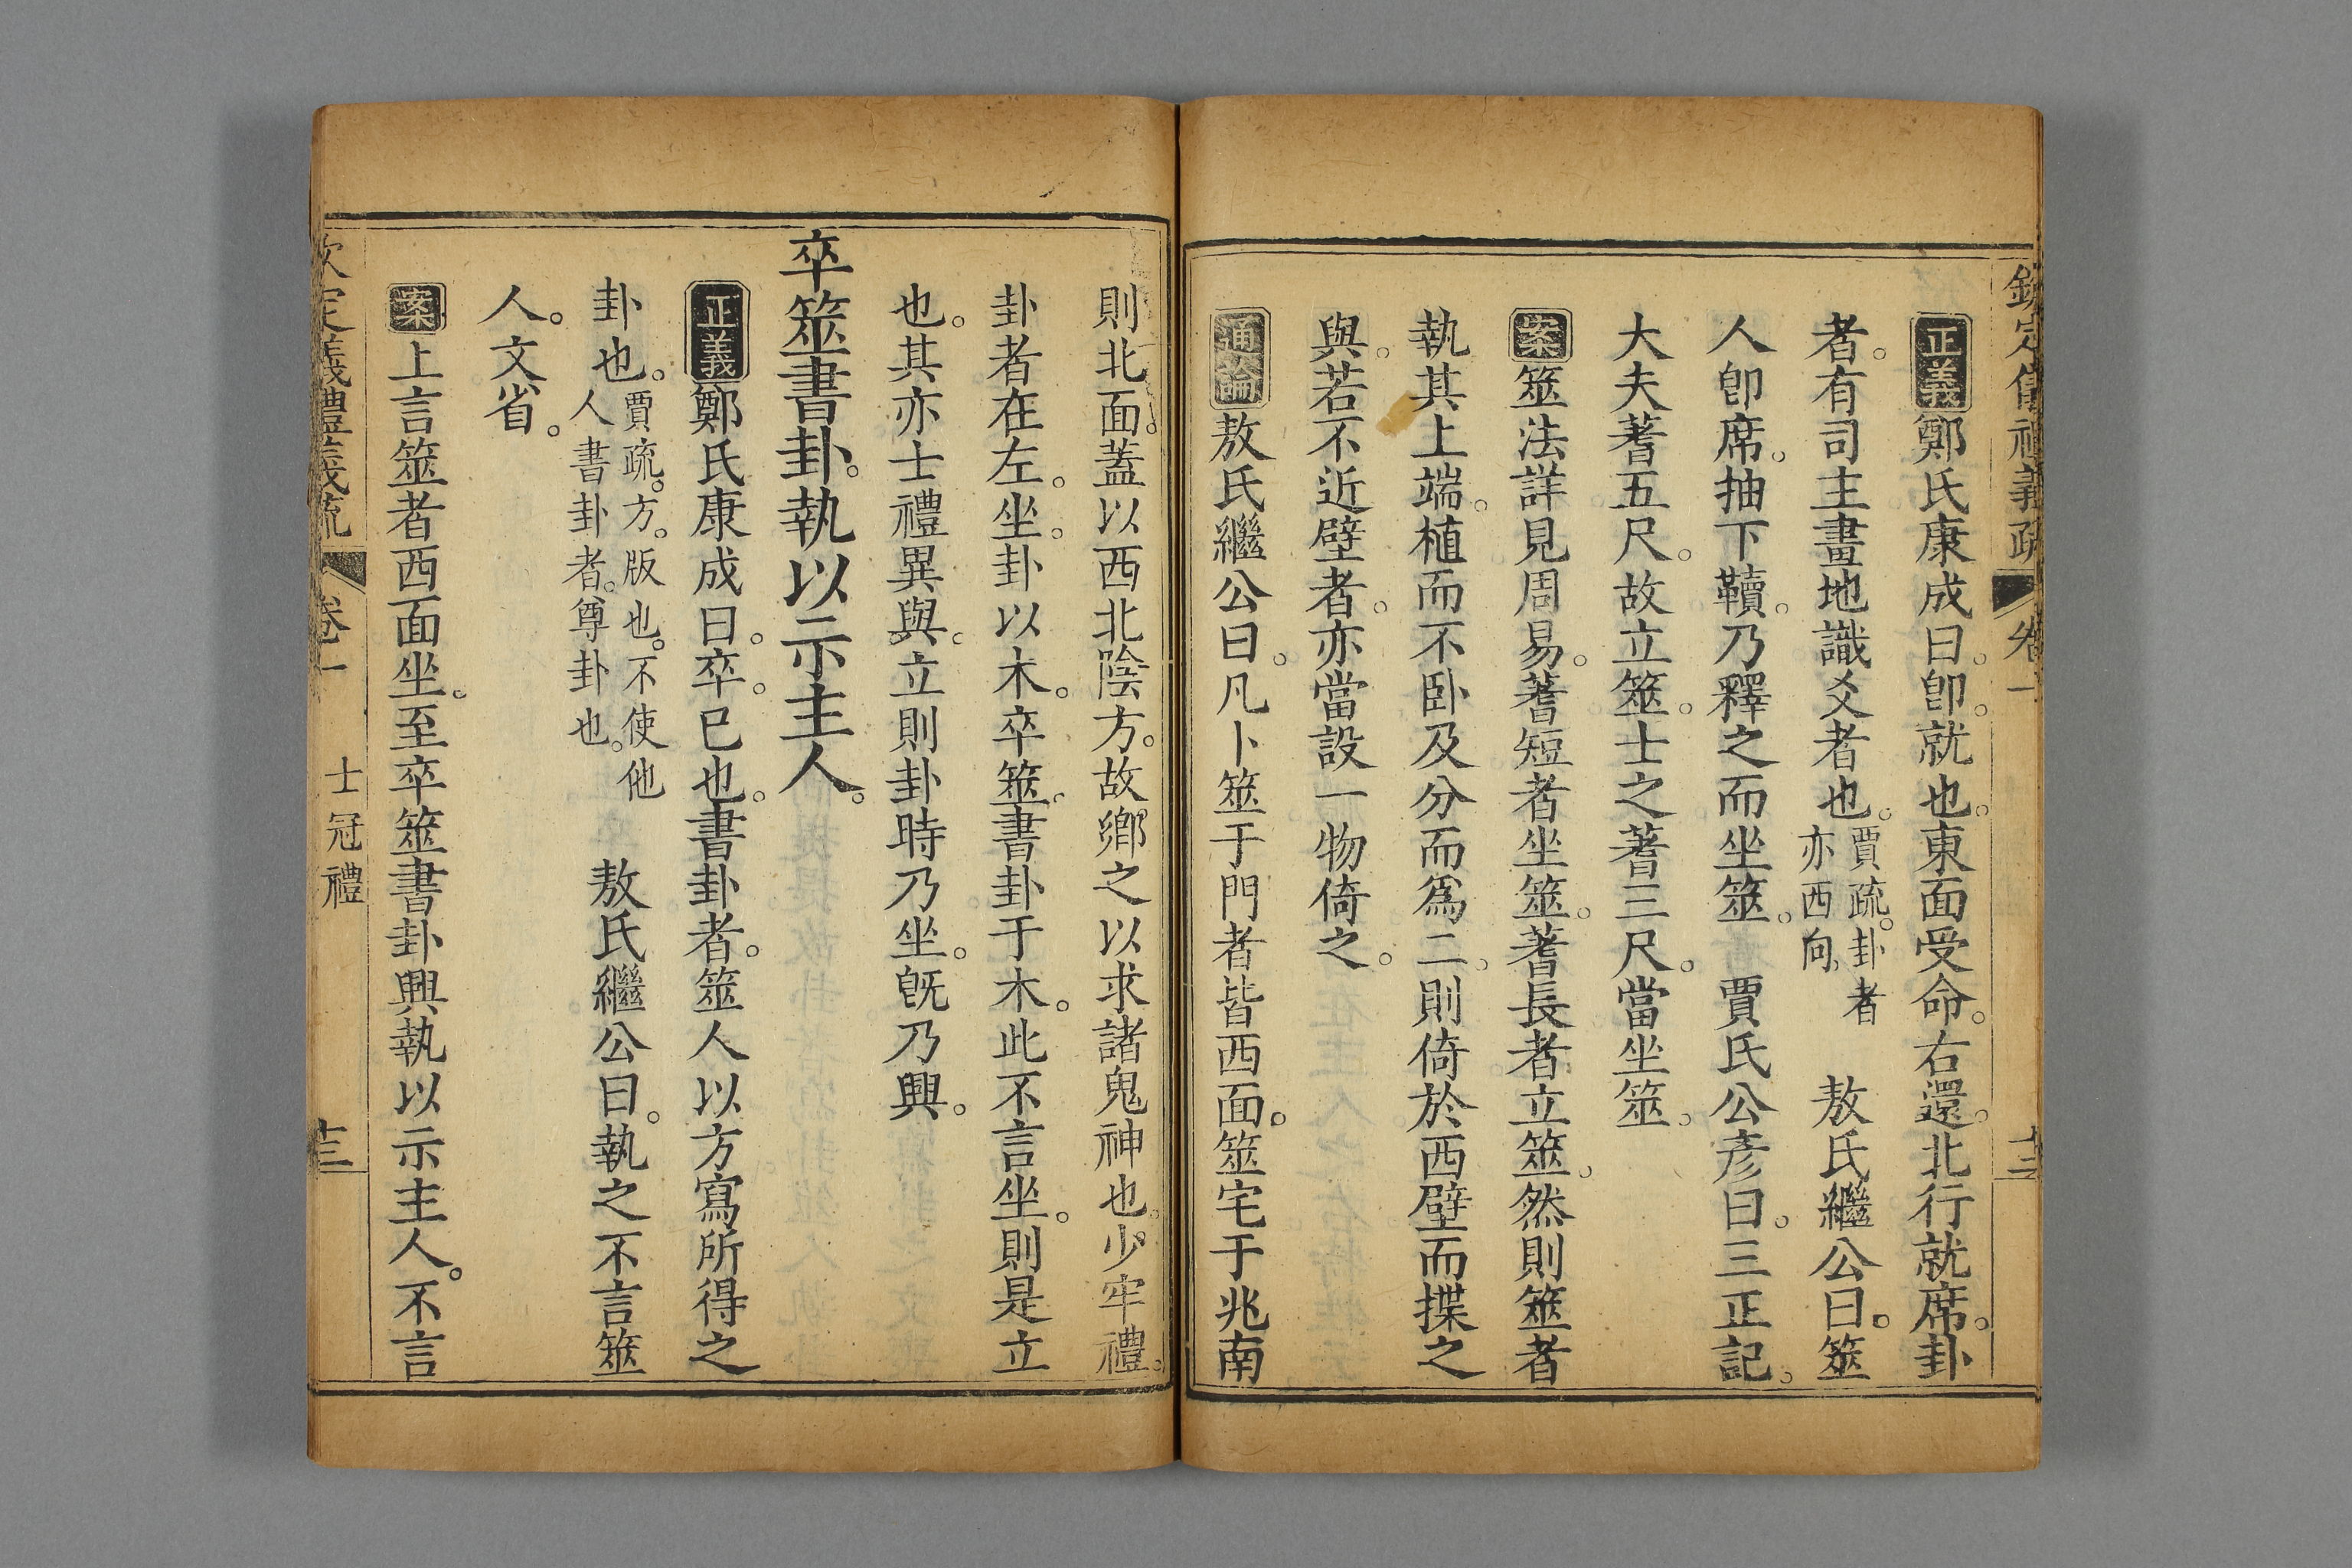 欽定儀禮義疏 卷一 十二
正義鄭氏康成曰。卽。就也。東面受命。右還。北行就席。卦
者。有司主畫地識爻者也。賈疏。卦者亦西向。 敖氏繼公曰。筮
人卽席。抽下韇。乃釋之而坐筮。 賈氏公彥曰。三正記。
大夫蓍五尺。故立筮。士之蓍三尺。當坐筮。
案筮法詳見周易。蓍短者坐筮。蓍長者立筮。然則筮者
執其上端。植而不臥及分而爲二。則倚於西壁而揲之
與。若不近壁者。亦當設一物倚之。
通論敖氏繼公曰。凡卜筮于門者皆西面。筮宅于兆南
則北面。蓋以西北陰方。故鄉之以求諸鬼神也。少牢禮。
卦者在左。坐。卦以木。卒筮。書卦于木。此不言坐。則是立
也。其亦士禮異與。立則卦時乃坐。旣乃興。
卒筮書卦。執以示主人。
正義鄭氏康成曰。卒。已也。書卦者。筮人以方寫所得之
卦也。賈疏。方。版也。不使他人書卦者。尊卦也。 敖氏繼公曰。執之不言筮
人。文省。
案上言筮者西面坐。至卒筮書卦興執以示主人。不言
欽定義禮義疏 卷一 士冠禮 十三